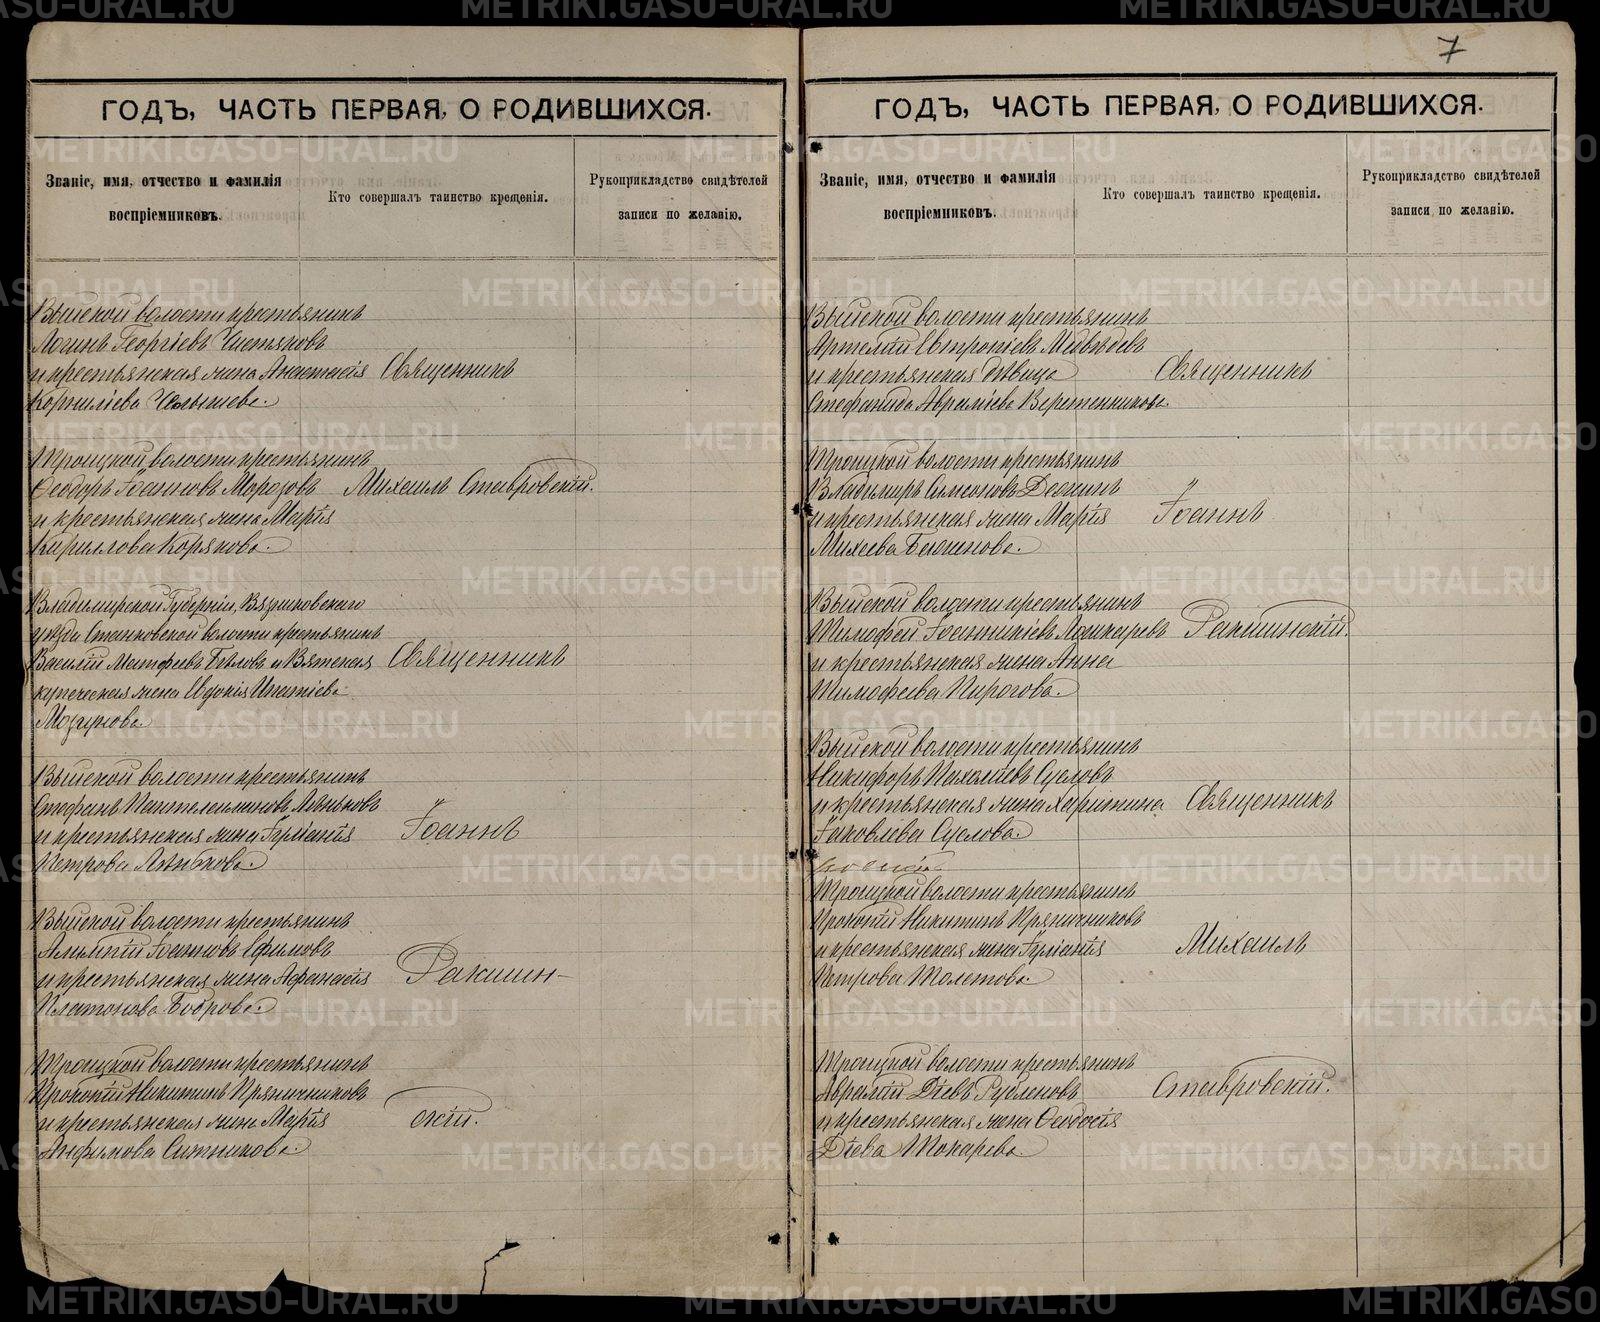 ГОДЪ, ЧАСТЬ ПЕРВАЯ, О РОДИВШИХСЯ.
Званіе, имя, отчество и фамилія воспріемниковъ.
Кто совершалъ таинство крещенія.
Рукоприкладство свидѣтелей записи по желанію.
Выйской волости крестьянинъ
Логинъ Георгіевъ Чистяковъ
и крестьянская жена Анастасія
Корниліева Челышева.
Троицкой волости крестьянинъ
Ѳеодоръ Іоанновъ Морозовъ
и крестьянская жена Марія
Кириллова Корякова.
Владимірской Губерніи, Вязниковскаго
уѣзда Станковской волости крестьянинъ
Василій Матфеевъ Бѣловъ и Вятская
купеческая жена Евдокія Ипатіева
Выйской волости крестьянинъ
Стефанъ Пантелеимоновъ
и крестьянская жена Іуліанія
Петрова
Выйской волости крестьянинъ
Алимпій Іоанновъ Ефимовъ
и крестьянская жена Аѳанасія
Платонова Боброва.
Троицкой волости крестьянинъ
Прокопій Никитинъ Пряничниковъ
и крестьянская жена Марія
Анфимова Ситникова.
Священникъ
Михаилъ Ставровскій.
Священникъ
Іоаннъ
Ракшин-
скій.
7
ГОДЪ, ЧАСТЬ ПЕРВАЯ, О РОДИВШИХСЯ.
Званіе, имя, отчество и фамилія воспріемниковъ.
Кто совершалъ таинство крещенія.
Рукоприкладство свидѣтелей записи по желанію.
Выйской волости крестьянинъ
Артемій Евтропіевъ Медвѣдевъ
и крестьянская дѣвица
Стефанида Авраміева Веретенникова.
Троицкой волости крестьянинъ
Владиміръ Симеоновъ
и крестьянская жена Марія
Михеева
Выйской волости крестьянинъ
Тимофей Іоанникіевъ Лошкаревъ
и крестьянская жена Анна
Тимофеева Пирогова.
Выйской волости крестьянинъ
Никифоръ Суеловъ
и крестьянская жена Харитина
Іаковлева Суелова.
Троицкой волости крестьянинъ
Прокопій Никитинъ Пряничниковъ
и крестьянская жена Іуліанія
Петрова Толстова.
Троицкой волости крестьянинъ
Аврамій Діевъ Рубленовъ
и крестьянская жена Ѳеодосія
Діева Токарева.
Священникъ
Іоаннъ
Ракшинскій.
Священникъ
Михаилъ
Ставровскій.
METRIKI.GASO-URAL.RU